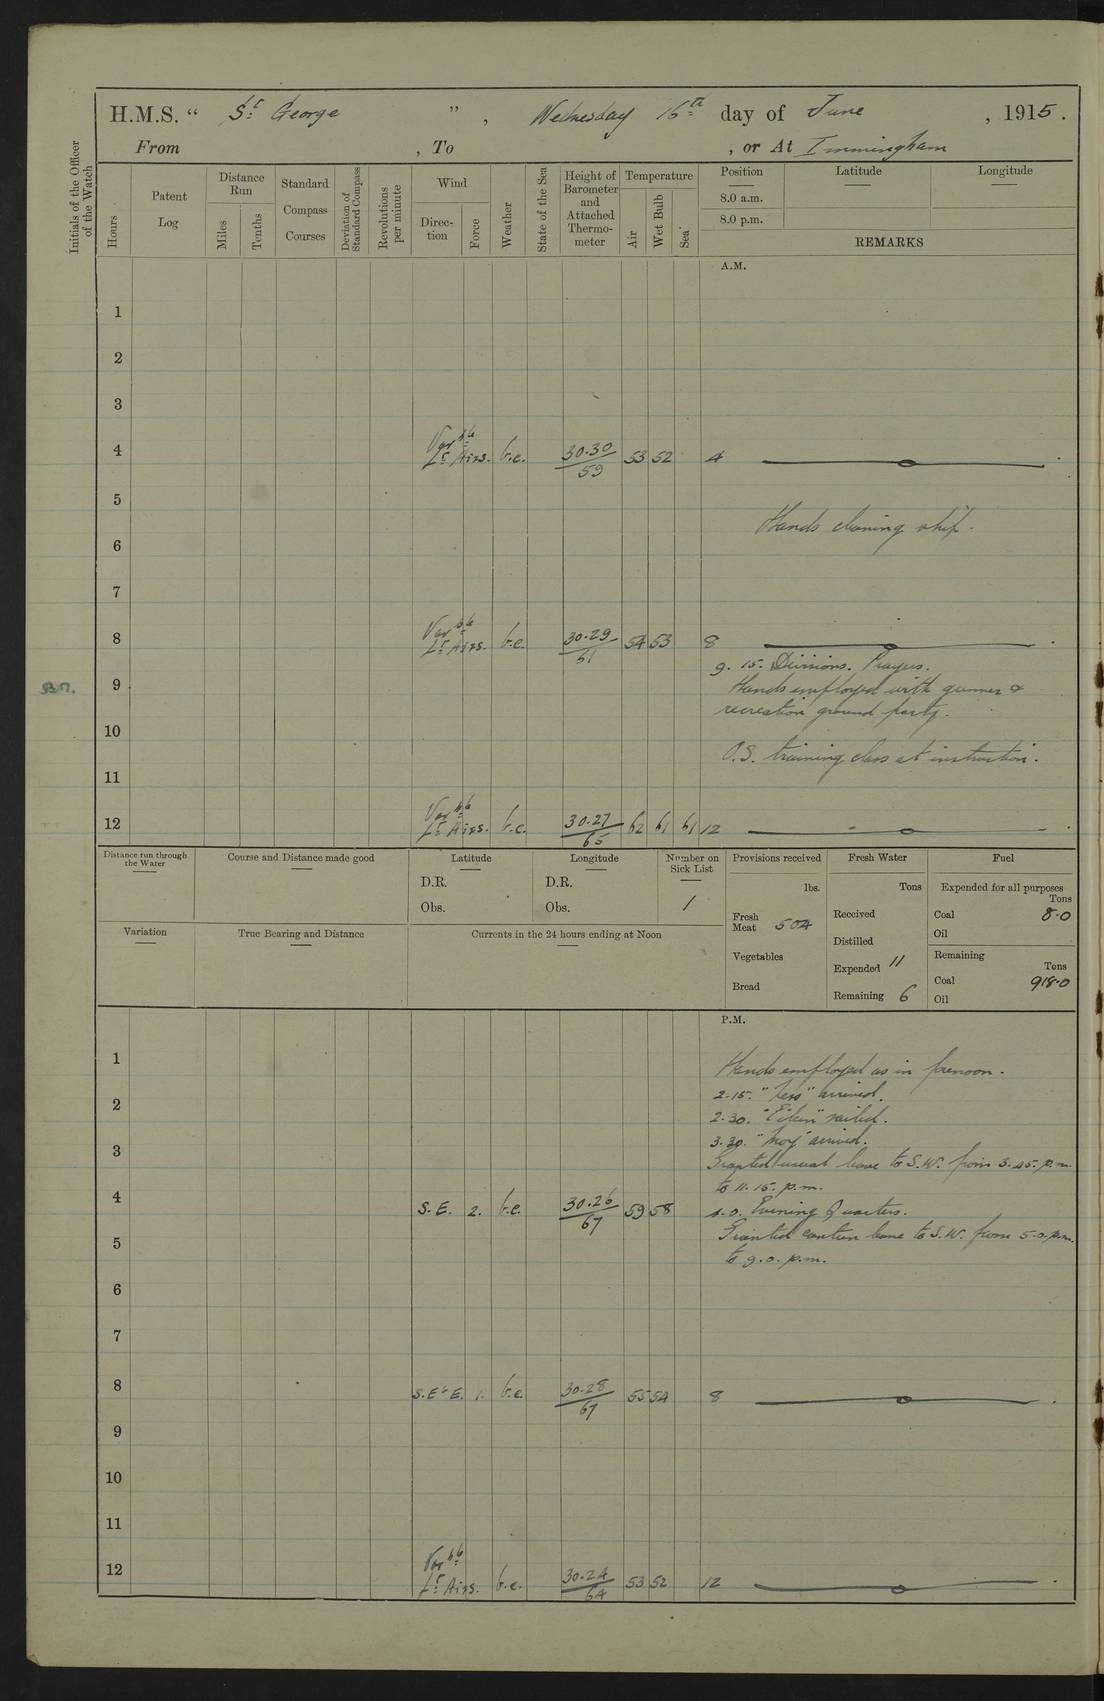 H.M.S. “ St George ” , Wednesday 16th day of June , 1915.
From , To , or At Immingham
Initials of the Officer of the Watch
Hours
Patent Log
Distance Run
Miles
Tenths
Standard Compass Courses
Deviation of Standard Compass
Revolutions per minute
Wind
Direction
Force
Weather
State of the Sea
Height of Barometer and Attached Thermometer
Temperature
Air
Wet Bulb
Sea
Position Latitude Longitude
8.0 a.m.
8.0 p.m.
REMARKS
A.M.
1
2
3
4 Varble Lt Airs. b.c. 30.30/59 53 52 4
5
Hands cleaning ship.
6
7
8 Varble Lt Airs. b.c. 30.29/61 54 53 8
9.15. Divisions. Prayers.
9 Hands employed with gunner &
recreation ground party.
10
O.S. training class at instruction.
11
12 Varble Lt Airs. b.c. 30.27/65 62 61 61 12
Distance run through the Water
Course and Distance made good
Latitude
D.R.
Obs.
Longitude
D.R.
Obs.
Number on Sick List
1
Provisions received
lbs.
Fresh Meat 504
Vegetables
Bread
Fresh Water
Tons
Received
Distilled
Expended 11
Remaining 6
Fuel
Expended for all purposes
Tons
Coal 8.0
Oil
Remaining
Tons
Coal 918.0
Oil
Variation
True Bearing and Distance
Currents in the 24 hours ending at Noon
P.M.
1 Hands employed as in forenoon.
2.15. arrived.
2 2.30. sailed.
3.30. arrived.
3 Granted usual leave to S.W. from 3.45. p.m.
to 11.15. p.m.
4 S.E. 2. b.c. 30.26/67 59 58 4.0. Evening Quarters.
5 Granted canteen leave to S.W. from 5.0. p.m.
to 9.0. p.m.
6
7
8 S.E b E. 1. b.c. 30.28/67 55 54 8
9
10
11
12 Varble Lt Airs. b.c. 30.24/64 53 52 12